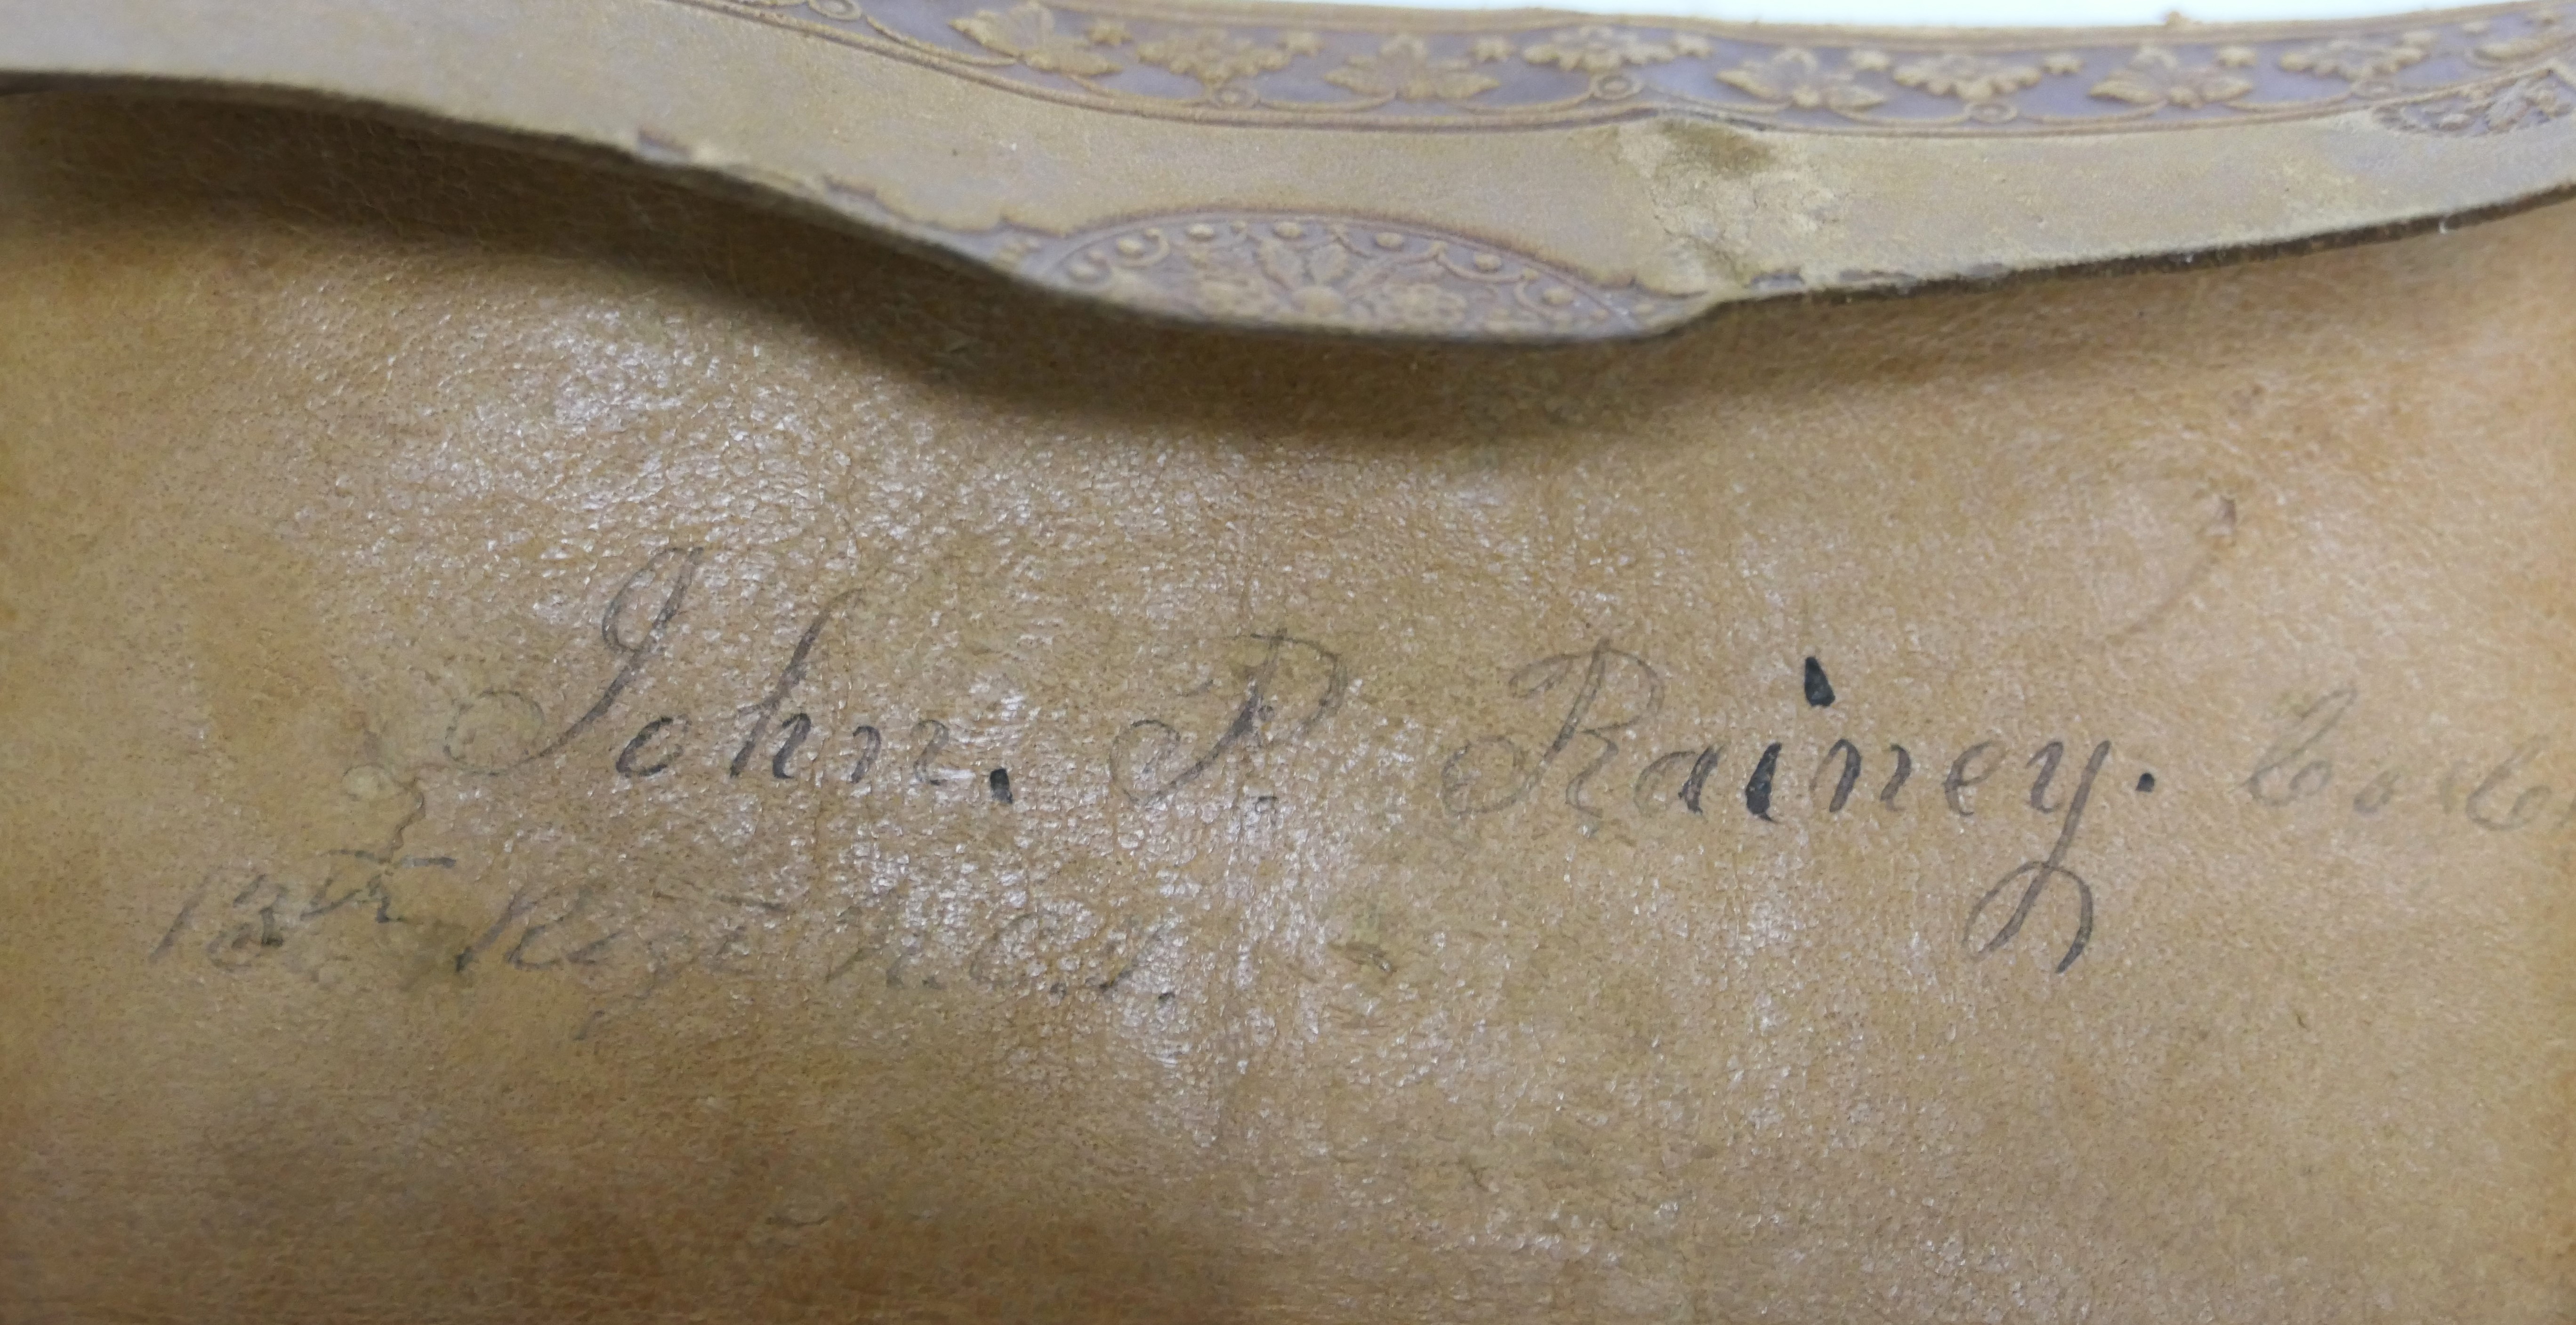 John. P. Rainey. Co. C
13th Regt N.C.